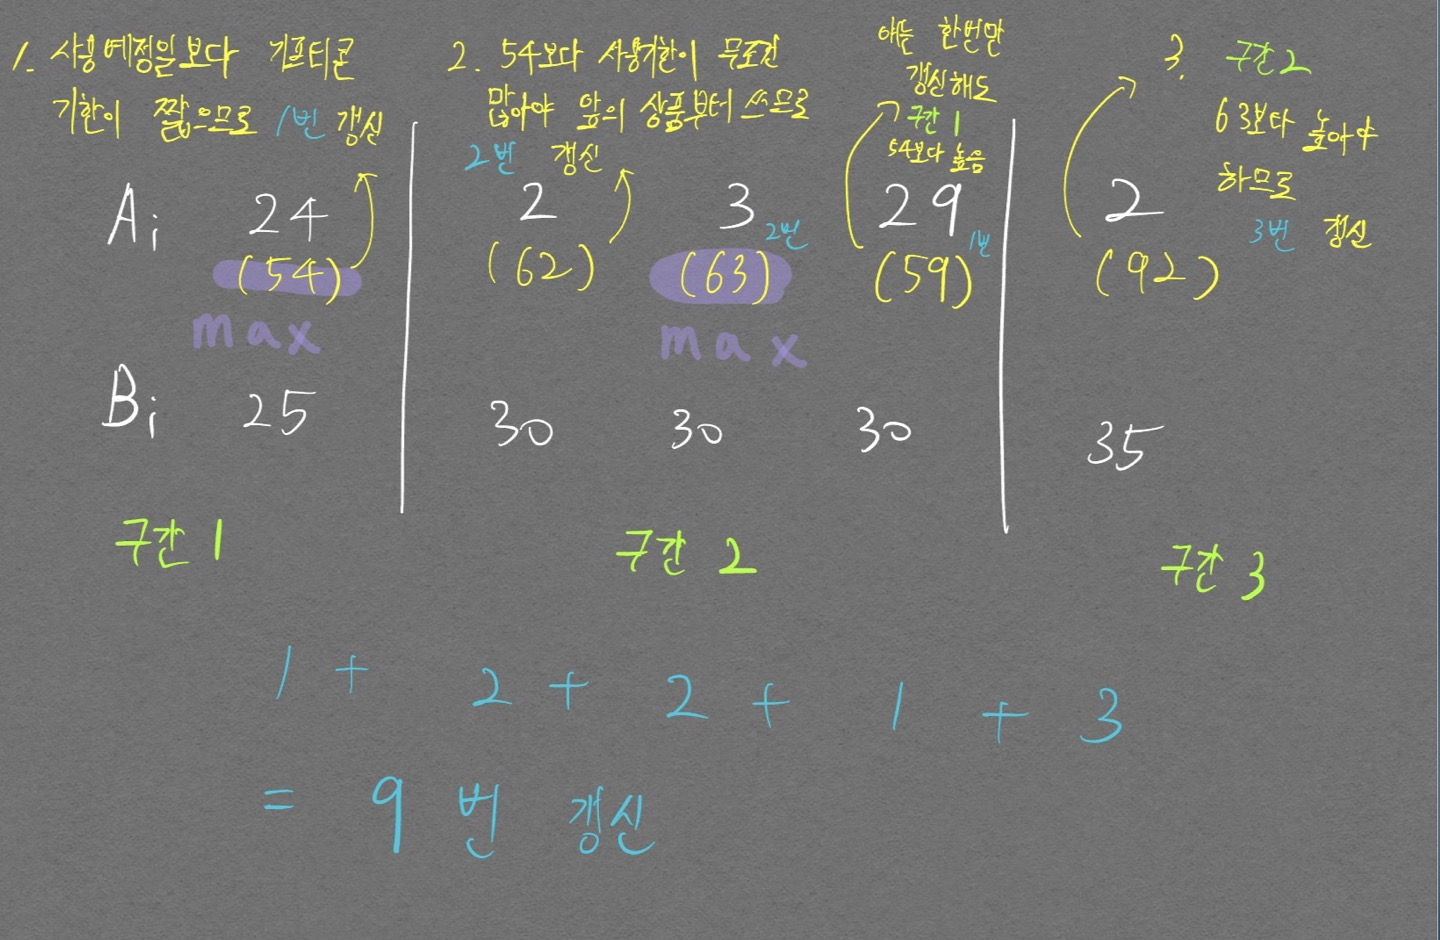 1. 사용예정일보다 기프티콘
기한이 짧으므로 1번 갱신
2. 54보다 사용기한이 무조건
많아야 앞의 상품부터 쓰므로
2번 갱신
얘는 한번만
갱신해도
구간 1
54보다 높음
3. 구간 2
63보다 높아야
하므로
3번 갱신
Ai 24 2 3 29 2
2번 1번
(54) (62) (63) (59) (92)
max max
Bi 25 30 30 30 35
구간 1 구간 2 구간 3
1 + 2 + 2 + 1 + 3
= 9 번 갱신